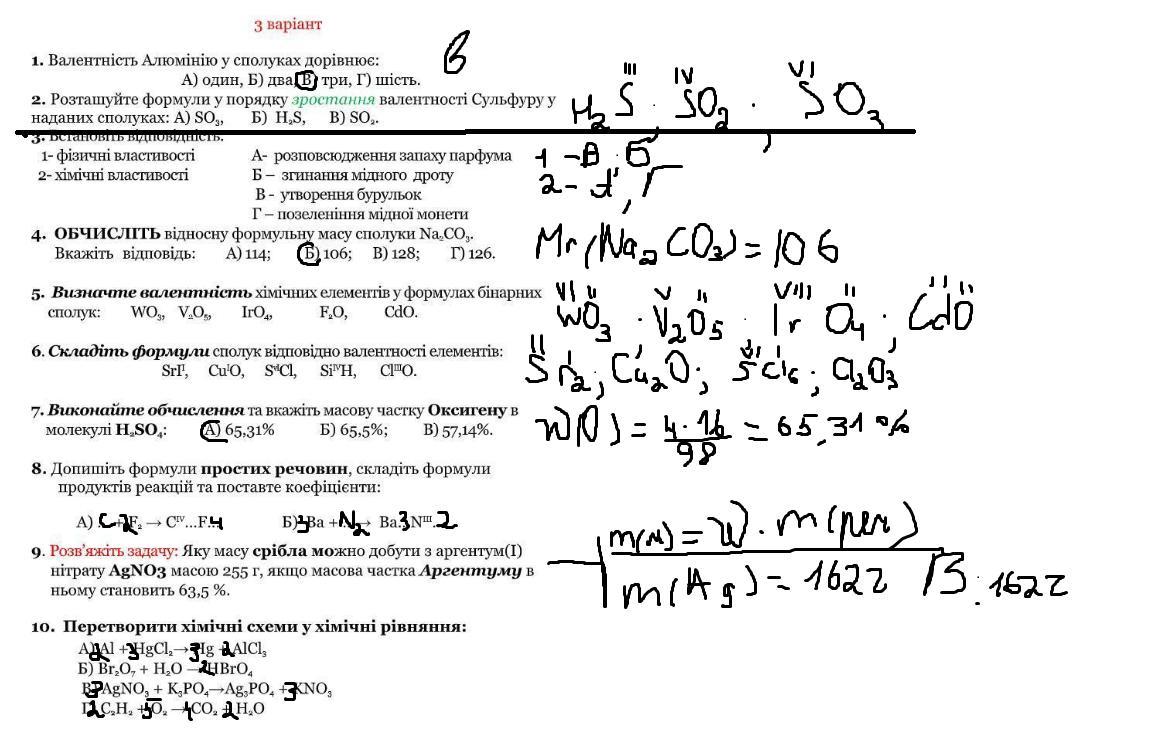 3 варіант
1. Валентність Алюмінію у сполуках дорівнює:
А) один, Б) два, В) три, Г) шість.
в
2. Розташуйте формули у порядку зростання валентності Сульфуру у
наданих сполуках: А) SO₃, Б) H₂S, В) SO₂.
III IV VI
H₂S, SO₂, SO₃
3. Встановіть відповідність.
1- фізичні властивості А- розповсюдження запаху парфума
2- хімічні властивості Б – згинання мідного дроту
В - утворення бурульок
Г – позеленіння мідної монети
1 - В, Б
2 - А, Г
4. ОБЧИСЛІТЬ відносну формульну масу сполуки Na₂CO₃.
Вкажіть відповідь: А) 114; Б) 106; В) 128; Г) 126.
Mr(Na₂CO₃) = 106
5. Визначте валентність хімічних елементів у формулах бінарних
сполук: WO₃, V₂O₅, IrO₄, F₂O, CdO.
VI II V II VIII II II II
WO₃ . V₂O₅ . IrO₄ . CdO
6. Складіть формули сполук відповідно валентності елементів:
SrIᴵ, CuᴵO, SᵛᴵCl, SiᴵⱽH, ClᴵᴵᴵO.
II I I VI I
SrI₂; Cu₂O; SCl₆; Cl₂O₃
7. Виконайте обчислення та вкажіть масову частку Оксигену в
молекулі H₂SO₄: А) 65,31% Б) 65,5%; В) 57,14%.
W(O) = 4·16/98 = 65,31%
8. Допишіть формули простих речовин, складіть формули
продуктів реакцій та поставте коефіцієнти:
А) C + 2F₂ → Cᴵⱽ...F...4 Б) 3Ba + N₂ → Ba 3 Nᴵᴵᴵ 2
9. Розв'яжіть задачу: Яку масу срібла можно добути з аргентум(I)
нітрату AgNO3 масою 255 г, якщо масова частка Аргентуму в
ньому становить 63,5 %.
m(Ag) = 162г
В: 162г
10. Перетворити хімічні схеми у хімічні рівняння:
А) 2Al + 3HgCl₂→3Hg + 2AlCl₃
Б) Br₂O₇ + H₂O →2HBrO₄
В) 3AgNO₃ + K₃PO₄→Ag₃PO₄ + 3KNO₃
Г) 2C₂H₂ + 5O₂ →4CO₂ + 2H₂O